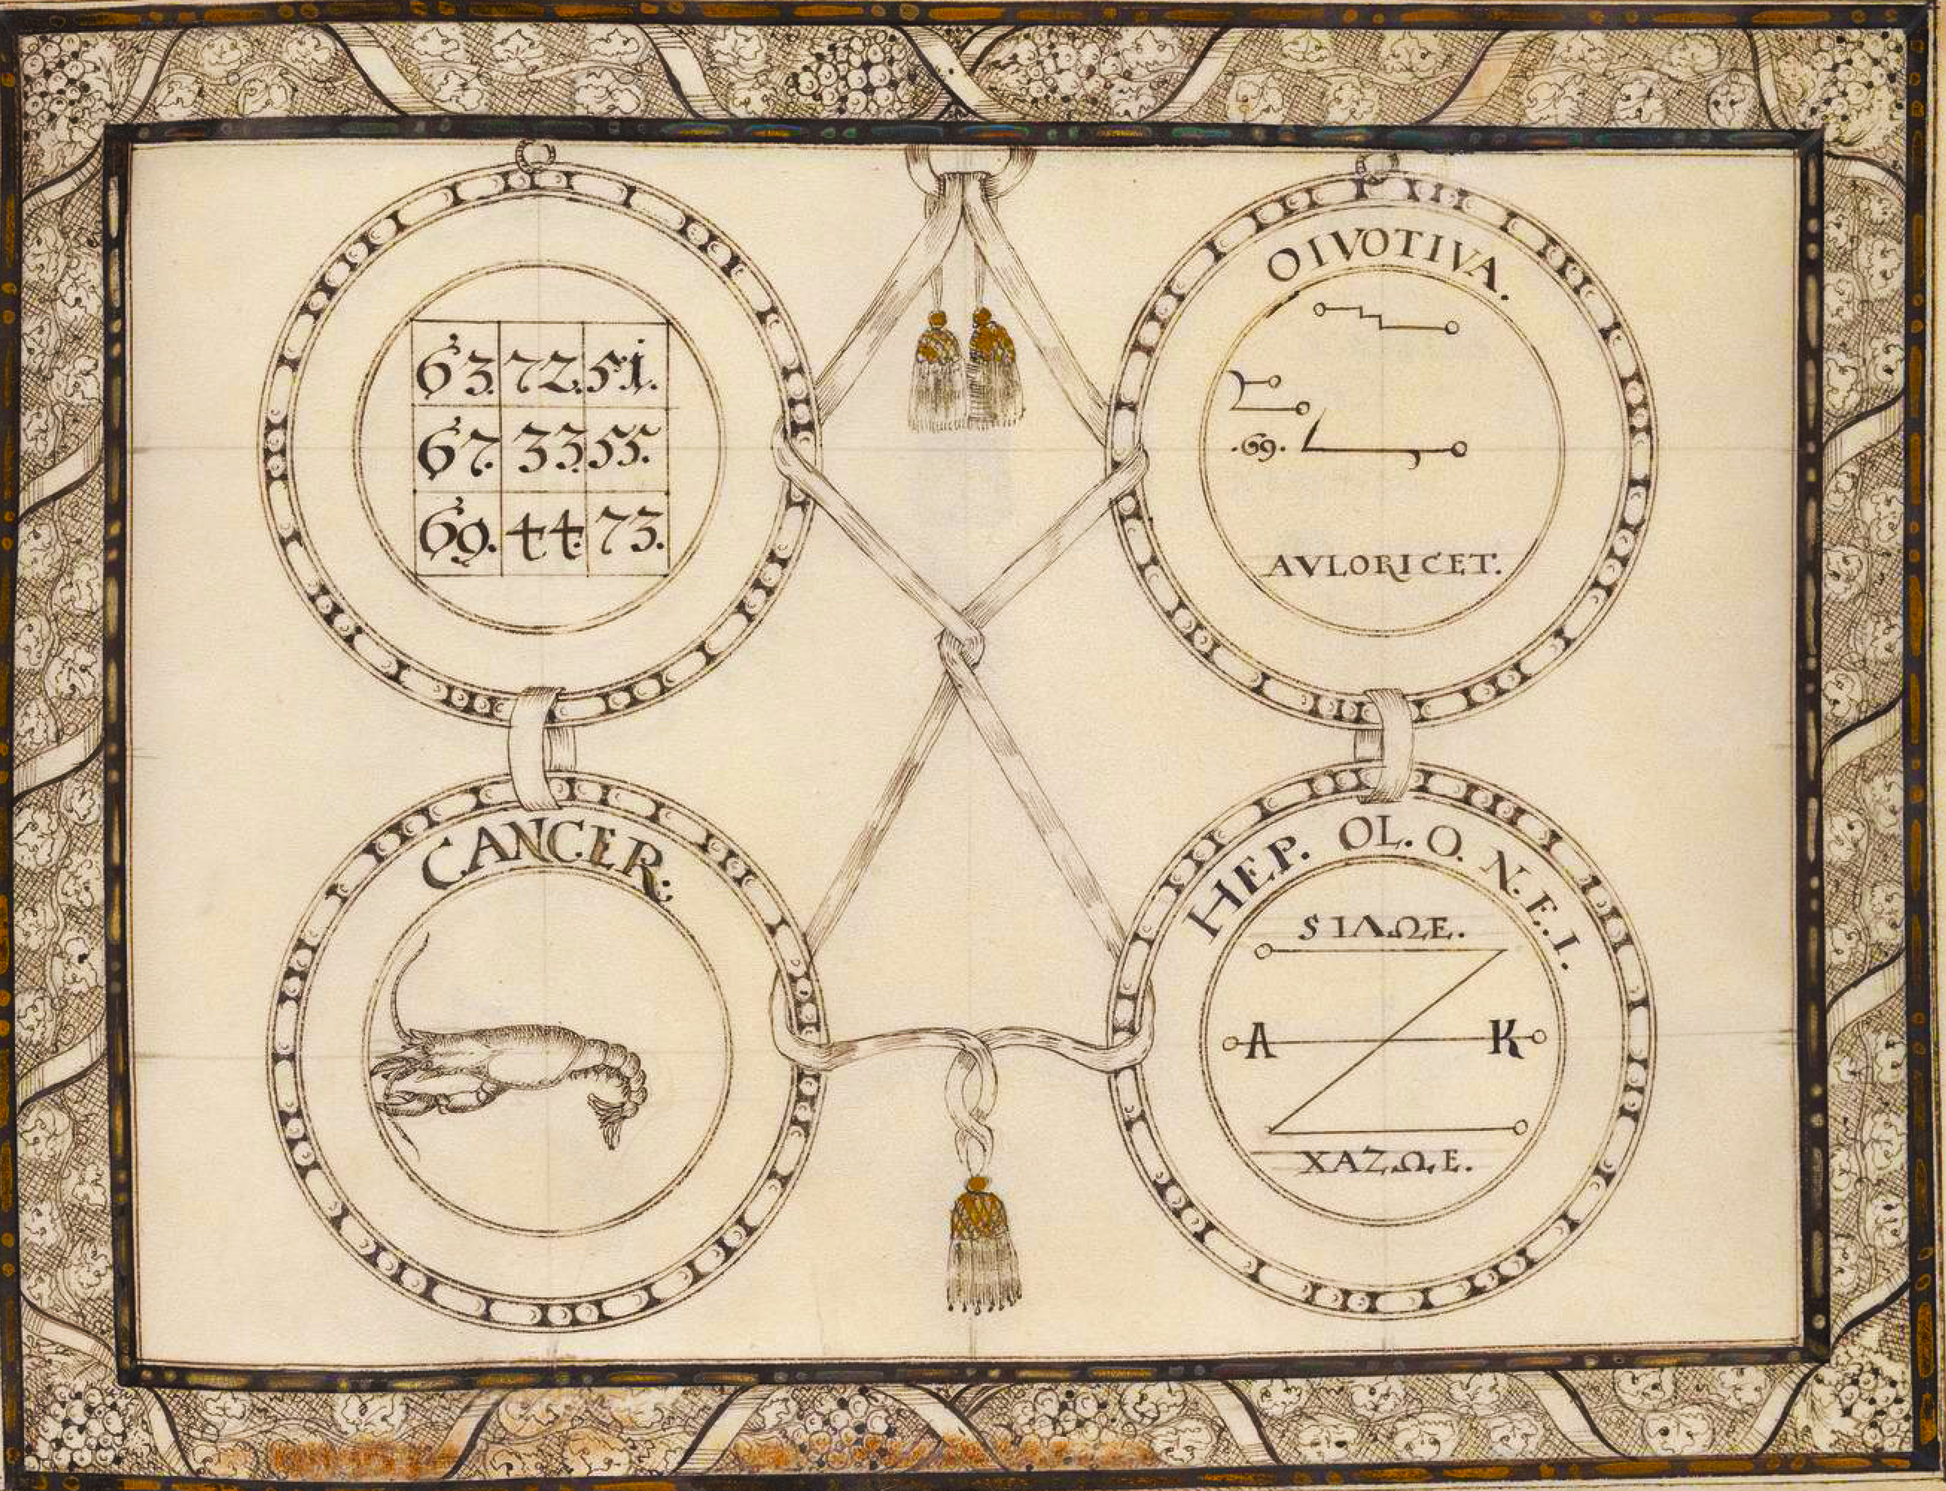 63. 72. 51.
67. 33. 55.
69. 44. 73.
OIVOTIVA.
.69.
AVLORICET.
CANCER.
HEP. OL. O. N. E. I.
SIΛΩE.
A K
XAZΩE.